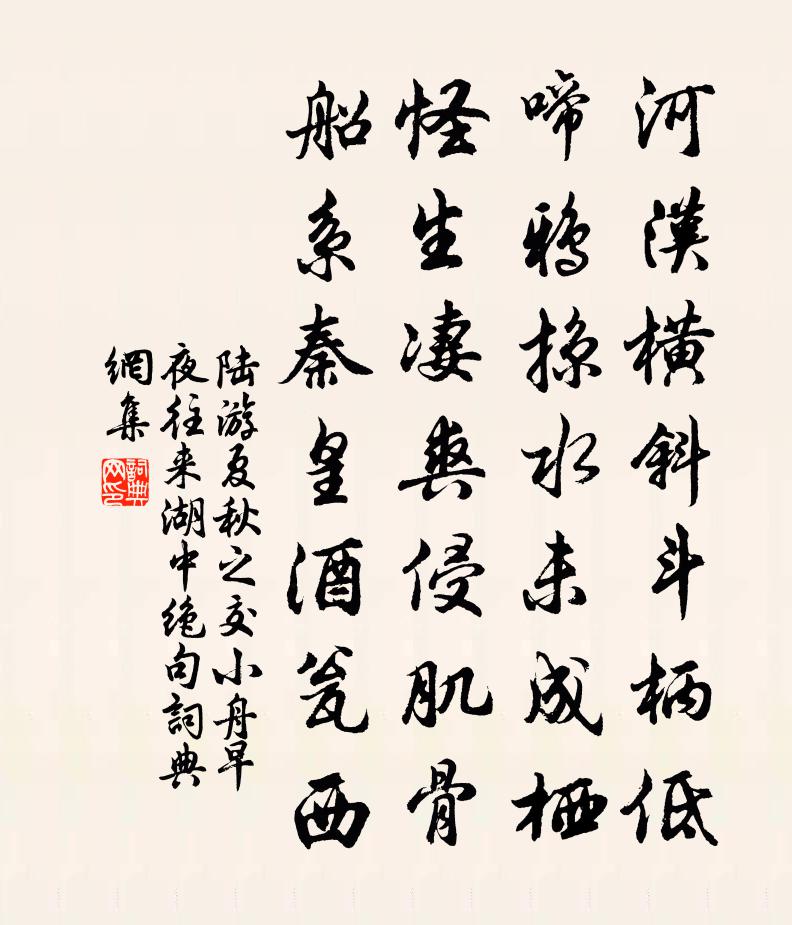 河漢橫斜斗柄低
啼鴉掠水未成栖
怪生凄爽侵肌骨
船系秦皇酒瓮西
陆游夏秋之交小舟早
夜往来湖中绝句詞典
網集
詞典
网印